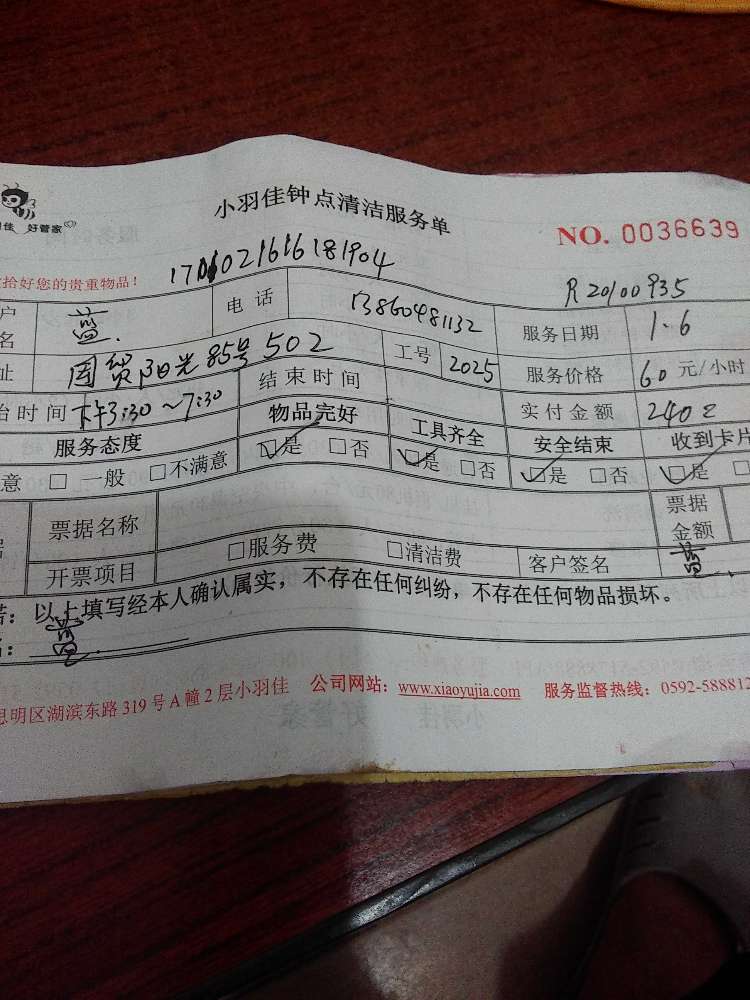 小羽佳钟点清洁服务单
NO. 0036639
羽佳 好管家
拾好您的贵重物品!
R20100935
户名 蓝. 电话 13860481132 服务日期 1.6
址 国贸阳光85号502 工号 2025 服务价格 60 元/小时
始时间 下午3:30~7:30 结束时间 实付金额 240元
服务态度 物品完好 工具齐全 安全结束 收到卡片
意 □ 一般 □不满意 □是 □否 □是 □否 □是 □否 □是
票据名称 票据金额
开票项目 □服务费 □清洁费 客户签名 蓝
诺:以上填写经本人确认属实,不存在任何纠纷,不存在任何物品损坏。
蓝
思明区湖滨东路319号A幢2层小羽佳 公司网站:www.xiaoyujia.com 服务监督热线:0592-588812